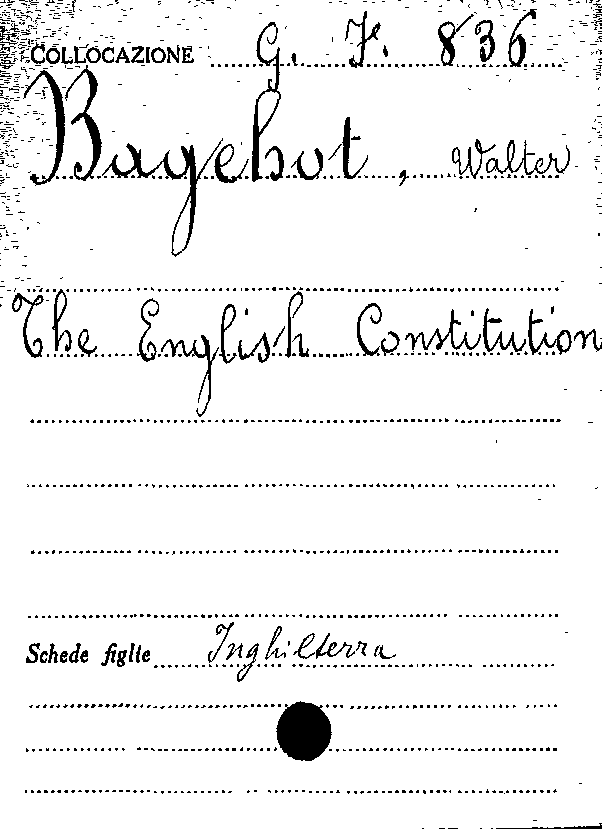 COLLOCAZIONE G. F. 836
Bagehot, Walter
The English Constitution
Schede figlie Inghilterra